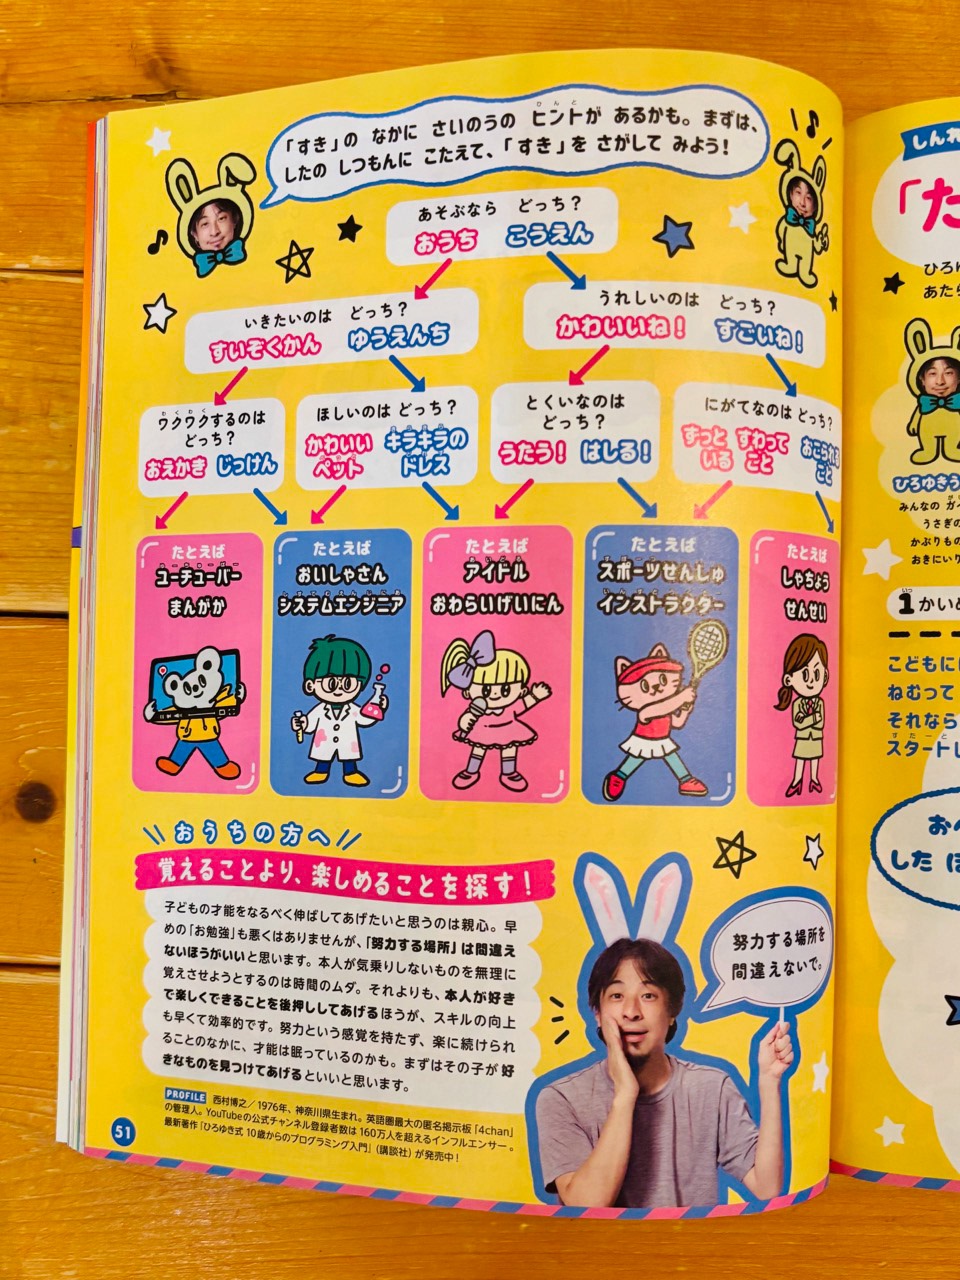 「すき」の なかに さいのうの ヒントが あるかも。まずは、
したの しつもんに こたえて、「すき」を さがして みよう！
あそぶなら どっち？
おうち こうえん
いきたいのは どっち？
すいぞくかん ゆうえんち
うれしいのは どっち？
かわいいね！ すごいね！
ワクワクするのは
どっち？
おえかき じっけん
ほしいのは どっち？
かわいい
ペット
キラキラの
ドレス
とくいなのは
どっち？
うたう！ はしる！
にがてなのは どっち？
ずっと すわって
いる こと
おこられる
こと
たとえば
ユーチューバー
まんがか
たとえば
おいしゃさん
システムエンジニア
たとえば
アイドル
おわらいげいにん
たとえば
スポーツせんしゅ
インストラクター
たとえば
しゃちょう
せんせい
おうちの方へ
覚えることより、楽しめることを探す！
子どもの才能をなるべく伸ばしてあげたいと思うのは親心。早
めの「お勉強」も悪くはありませんが、「努力する場所」は間違え
ないほうがいいと思います。本人が気乗りしないものを無理に
覚えさせようとするのは時間のムダ。それよりも、本人が好き
で楽しくできることを後押ししてあげるほうが、スキルの向上
も早くて効率的です。努力という感覚を持たず、楽に続けられ
ることのなかに、才能は眠っているのかも。まずはその子が好
きなものを見つけてあげるといいと思います。
努力する場所を
間違えないで。
PROFILE 西村博之／1976年、神奈川県生まれ。英語圏最大の匿名掲示板「4chan」
の管理人。YouTubeの公式チャンネル登録者数は160万人を超えるインフルエンサー。
最新著作『ひろゆき式 10歳からのプログラミング入門』（講談社）が発売中！
51
しんね
「た
ひろゆ
あたら
ひろゆきう
みんなの ガイ
うさぎの
かぶりもの
おきにいり
1かいめ
こどもに
ねむって
それなら
スタートし
おべ
した ほ